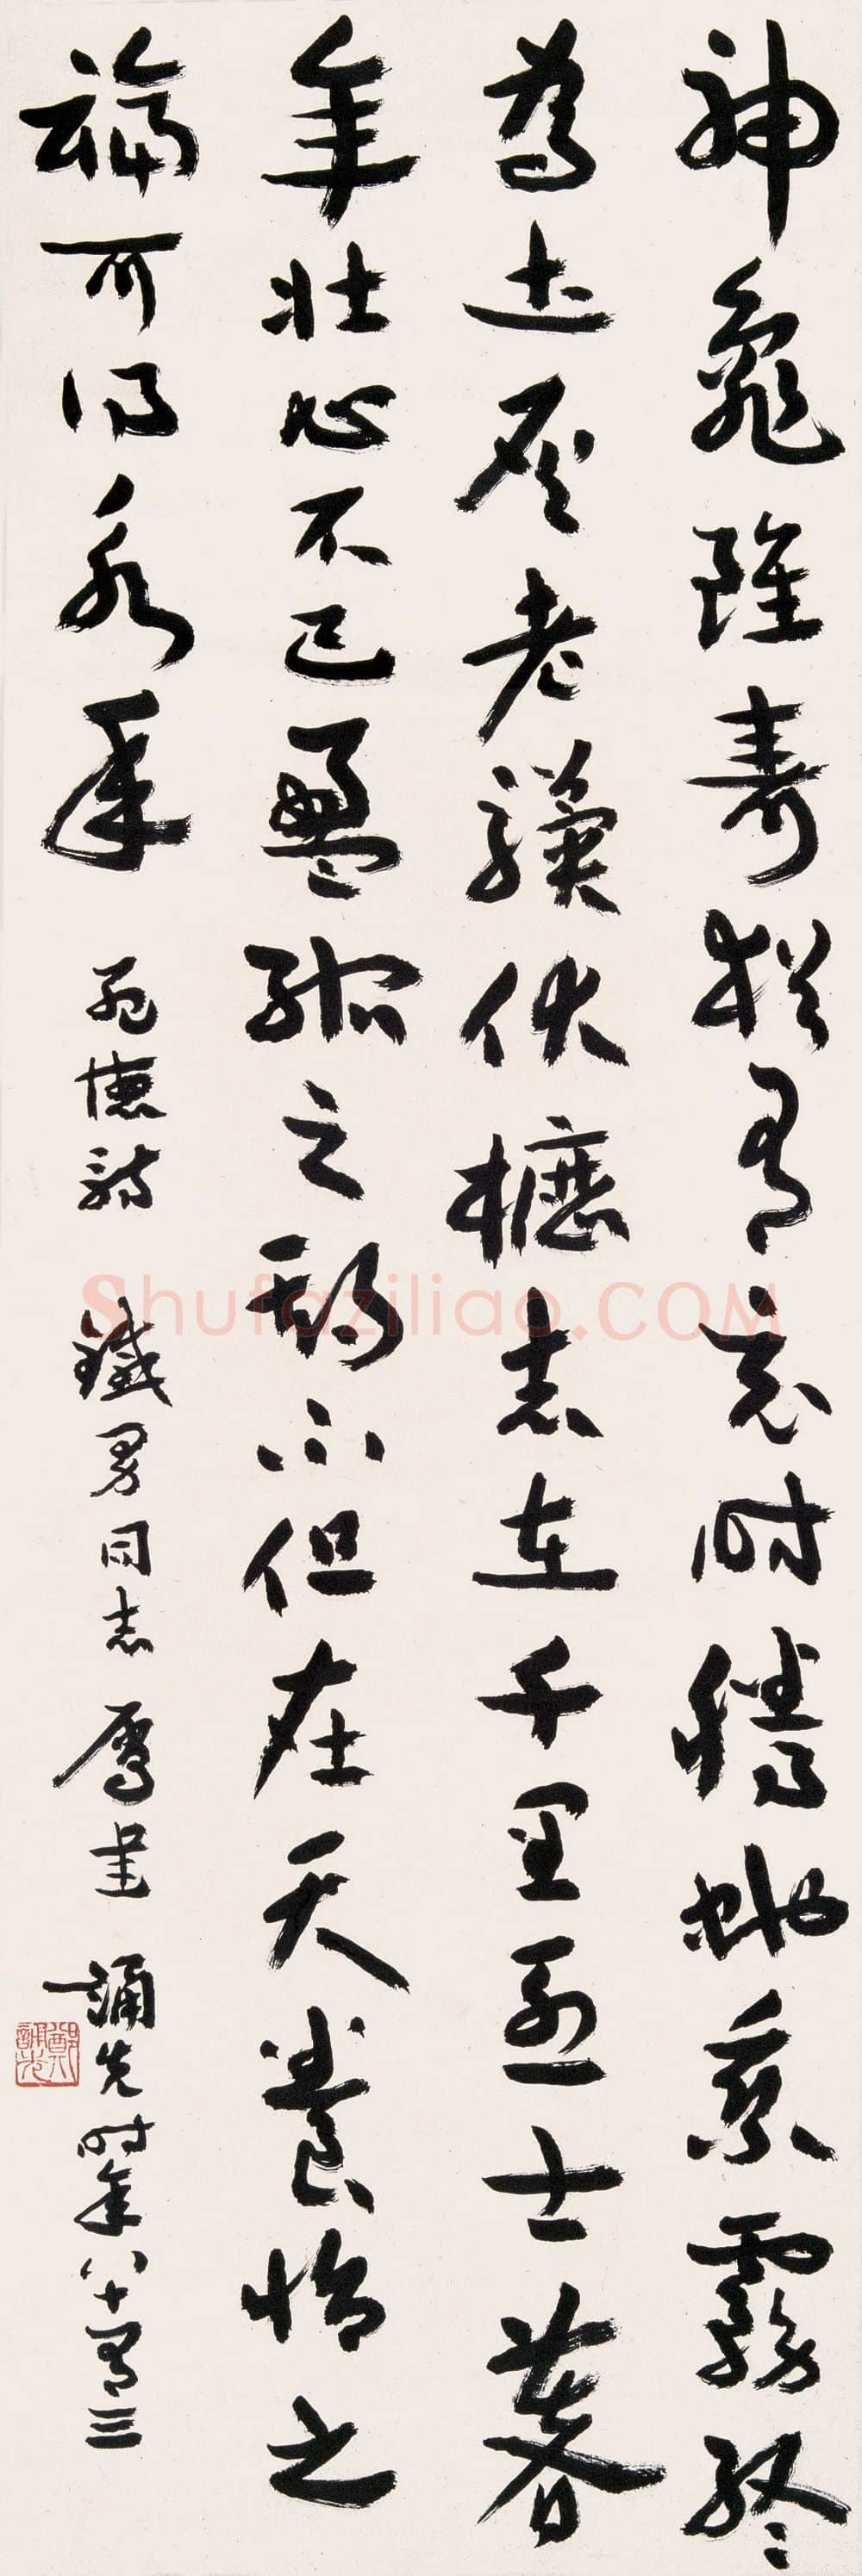 神龜雖壽猶有竟時騰虵乘霧終
為土灰老驥伏櫪志在千里烈士暮
年壯心不已盈縮之期不但在天養怡之
福可得永年 孟德詩 鐵男同志屬書 誦先時年八十有三
鄭誦先
Shufaziliao.COM